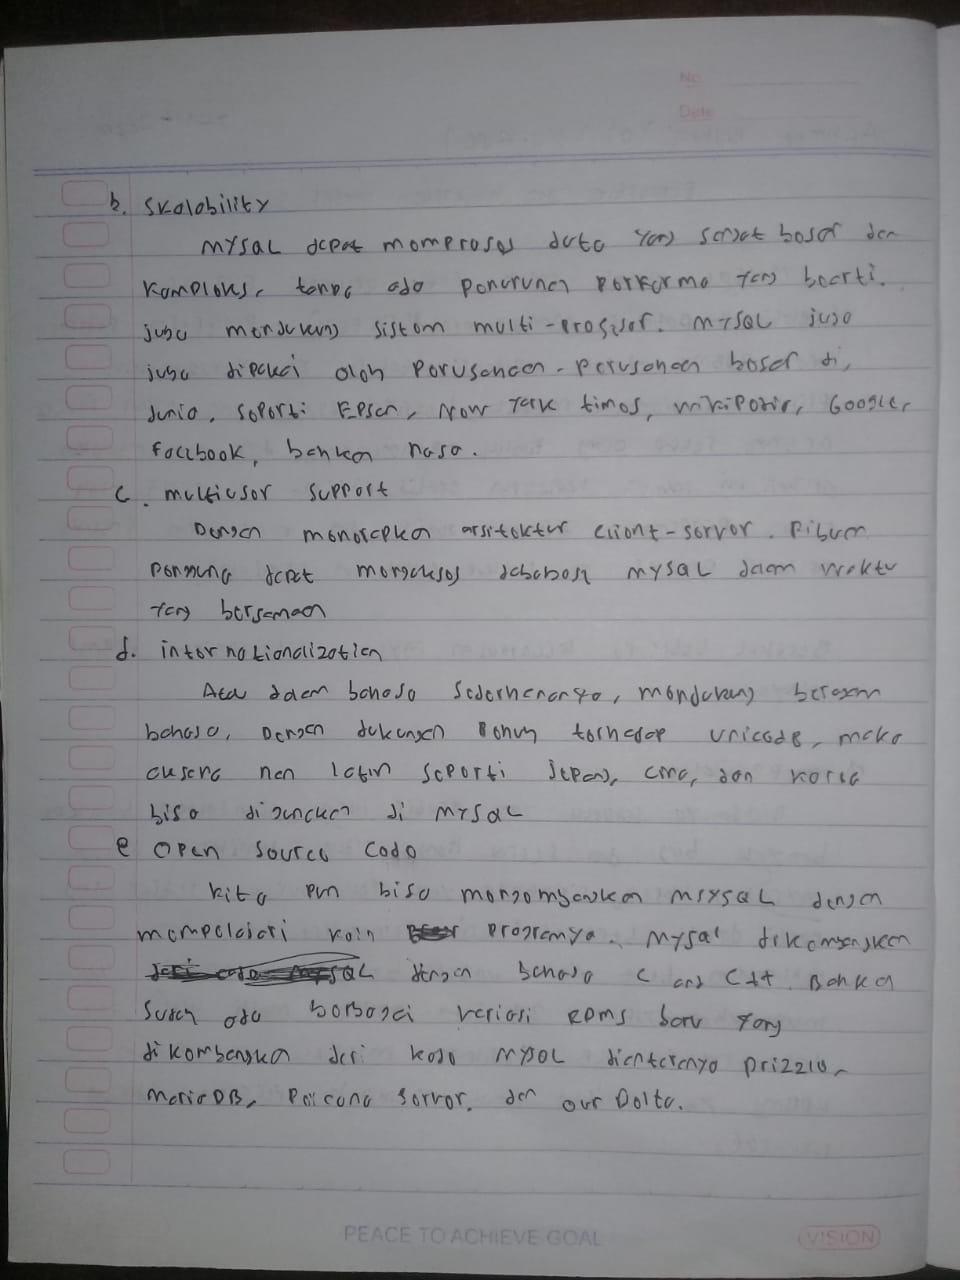 No
Date
b. Skalability
MYSQL dapat memproses data yang sangat besar dan
kompleks, tanpa ada penurunan performa yang berarti.
juga mendukung sistem multi-prosesor. MYSQL juga
juga dipakai oleh perusahaan-perusahaan besar di,
dunia, seperti Epson, New York times, wikipedia, Google,
facebook, bahkan nasa.
c. multiuser support
Dengan menerapkan arsitektur client-server. Ribuan
pengguna dapat mengakses database MYSQL dalam waktu
yang bersamaan
d. internationalization
Atau dalam bahasa sederhananya, mendukung beragam
bahasa, Dengan dukungan penuh terhadap unicode, maka
aksara non latin seperti jepang, cina, dan korea
bisa digunakan di MYSQL
e Open Source Code
kita pun bisa mengembangkan MSYSQL dengan
mempelajari programnya. MYSQL dikembangkan
dengan bahasa C ang C++. Bahkan
Sudah ada berbagai variasi RDMS baru yang
dikembangkan dari kode MYSQL diantaranya Drizzle,
MariaDB, Percona Server, dan our Delta.
PEACE TO ACHIEVE GOAL
VISION